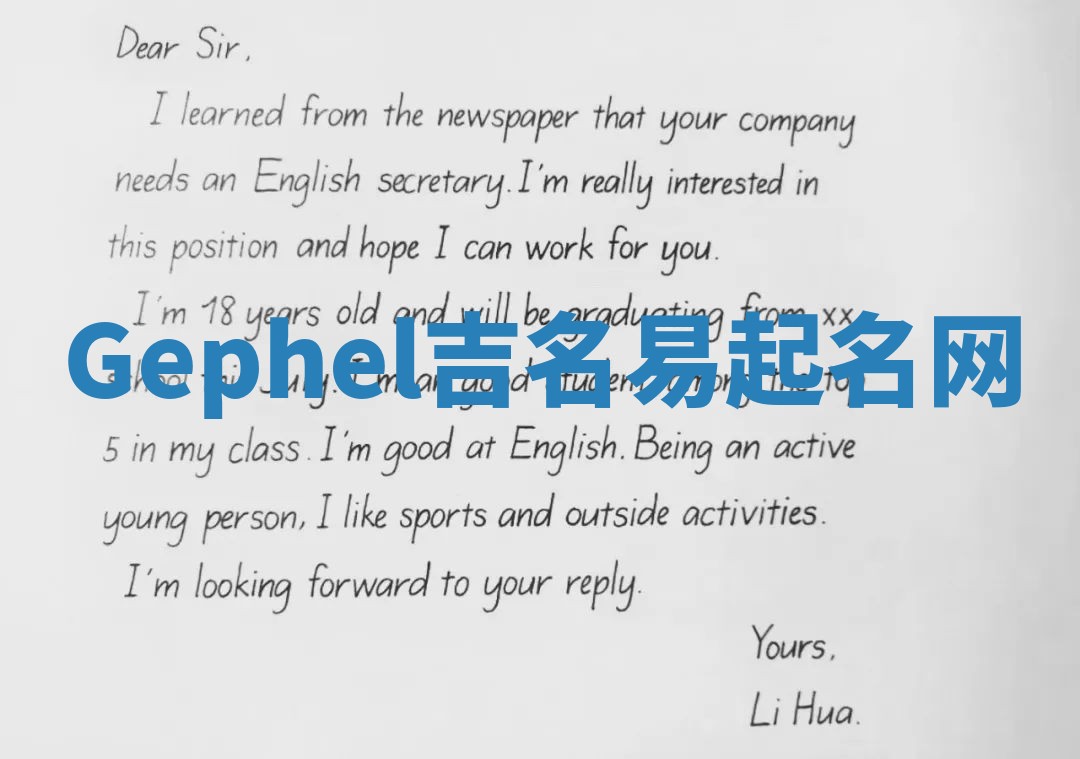 Dear Sir,
I learned from the newspaper that your company
needs an English secretary. I'm really interested in
this position and hope I can work for you.
I'm 18 years old and will be graduating from xx
Gephel吉名易起名网
school this July. I'm a good student among the top
5 in my class. I'm good at English. Being an active
young person, I like sports and outside activities.
I'm looking forward to your reply.
Yours,
Li Hua.